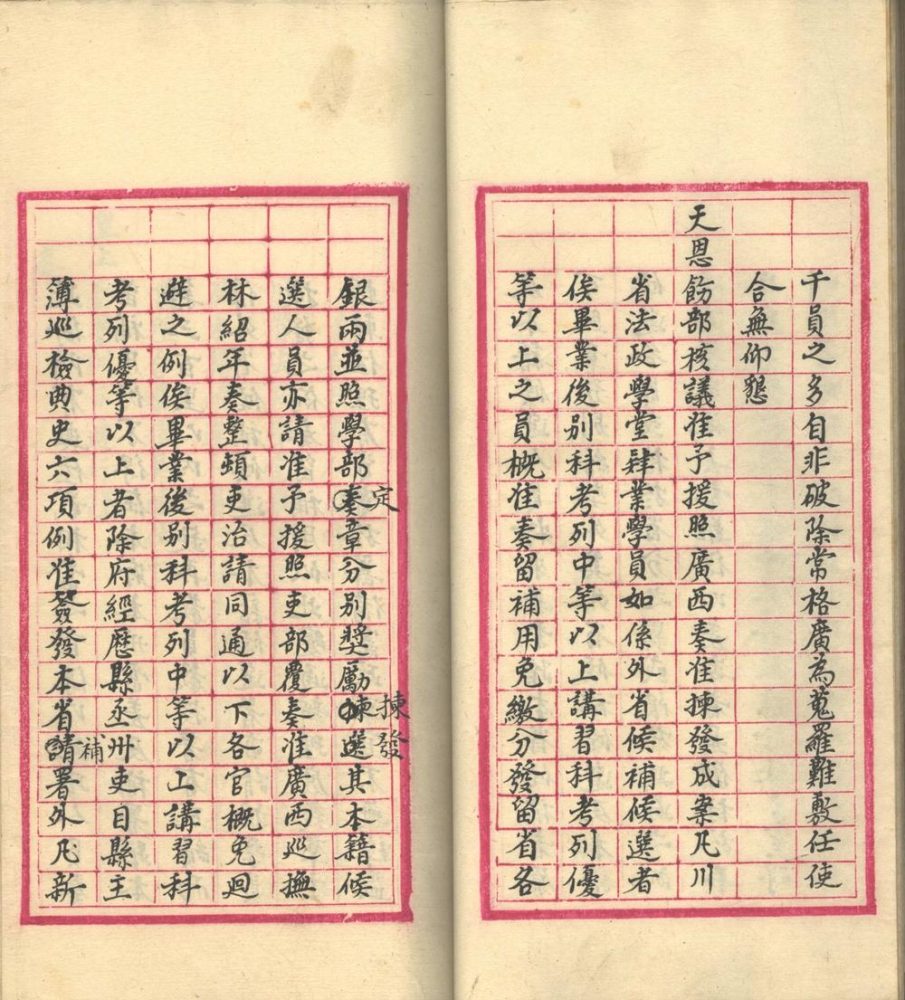 千員之多自非破除常格廣為蒐羅難敷任使
合無仰懇
天恩飭部核議准予援照廣西奏准揀發成案凡川
省法政學堂肄業學員如係外省候補候選者
俟畢業後別科考列中等以上講習科考列優
等以上之員概准奏留補用免繳分發留省各
定
揀發
銀兩並照學部奏章分別獎勵揀選其本籍候
選人員亦請准予援照吏部覆奏准廣西巡撫
林紹年奏整頓吏治請同通以下各官概免迴
避之例俟畢業後別科考列中等以上講習科
考列優等以上者除府經歷縣丞州吏目縣主
補
薄巡檢典史六項例准簽發本省請署外凡新